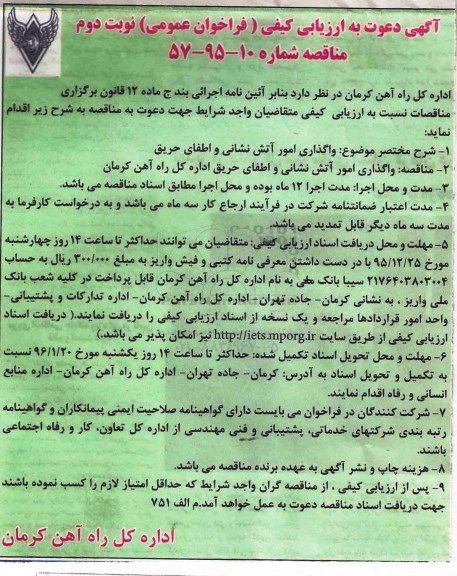 آگهی دعوت به ارزیابی کیفی ( فراخوان عمومی) نوبت دوم
مناقصه شماره ۱۰-۹۵-۵۷
اداره کل راه آهن کرمان در نظر دارد بنابر آئین نامه اجرائی بند ج ماده ۱۲ قانون برگزاری
مناقصات نسبت به ارزیابی کیفی متقاضیان واجد شرایط جهت دعوت به مناقصه به شرح زیر اقدام
نماید:
۱- شرح مختصر موضوع: واگذاری امور آتش نشانی و اطفای حریق
۲- مناقصه: واگذاری امور آتش نشانی و اطفای حریق اداره کل راه آهن کرمان
۳- مدت و محل اجرا: مدت اجرا ۱۲ ماه بوده و محل اجرا مطابق اسناد مناقصه می باشد.
۴- مدت اعتبار ضمانتنامه شرکت در فرآیند ارجاع کار سه ماه می باشد و به درخواست کارفرما به
مدت سه ماه دیگر قابل تمدید می باشد.
۵- مهلت و محل دریافت اسناد ارزیابی کیفی: متقاضیان می توانند حداکثر تا ساعت ۱۴ روز چهارشنبه
مورخ ۹۵/۱۲/۲۵ با در دست داشتن معرفی نامه کتبی و فیش واریز به مبلغ ۳۰۰/۰۰۰ ریال به حساب
۲۱۷۶۴۰۳۸۰۳۰۰۴ سیبا بانک ملی به نام اداره کل راه آهن کرمان قابل پرداخت در کلیه شعب بانک
ملی واریز ، به نشانی کرمان- جاده تهران- اداره کل راه آهن کرمان- اداره تدارکات و پشتیبانی-
واحد امور قراردادها مراجعه و یک نسخه از اسناد ارزیابی کیفی را دریافت نمایند.( دریافت اسناد
ارزیابی کیفی از طریق سایت http://iets.mporg.ir نیز امکان پذیر می باشد.)
۶- مهلت و محل تحویل اسناد تکمیل شده: حداکثر تا ساعت ۱۴ روز یکشنبه مورخ ۹۶/۱/۲۰ نسبت
به تکمیل و تحویل اسناد به آدرس: کرمان- جاده تهران- اداره کل راه آهن کرمان- اداره منابع
انسانی و رفاه اقدام نمایند.
۷- شرکت کنندگان در فراخوان می بایست دارای گواهینامه صلاحیت ایمنی پیمانکاران و گواهینامه
رتبه بندی شرکتهای خدماتی، پشتیبانی و فنی مهندسی از اداره کل تعاون، کار و رفاه اجتماعی
باشند.
۸- هزینه چاپ و نشر آگهی به عهده برنده مناقصه می باشد.
۹- پس از ارزیابی کیفی ، از مناقصه گران واجد شرایط که حداقل امتیاز لازم را کسب نموده باشند
جهت دریافت اسناد مناقصه دعوت به عمل خواهد آمد.م الف ۷۵۱
اداره کل راه آهن کرمان